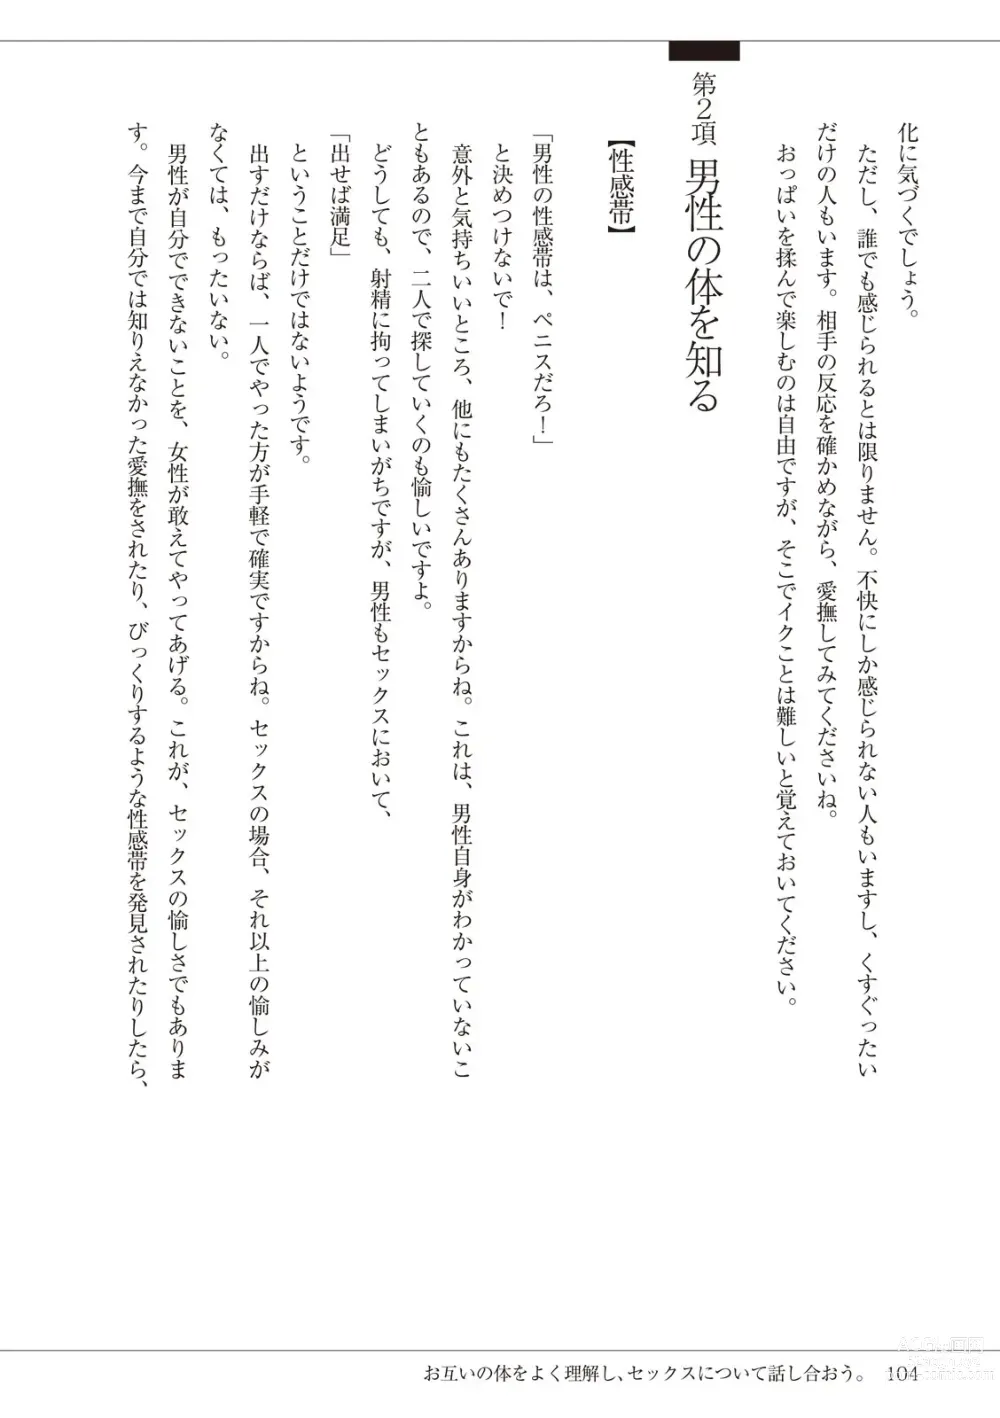 化に気づくでしょう。
ただし、誰でも感じられるとは限りません。不快にしか感じられない人もいますし、くすぐったい
だけの人もいます。相手の反応を確かめながら、愛撫してみてくださいね。
おっぱいを揉んで楽しむのは自由ですが、そこでイクことは難しいと覚えておいてください。
第2項 男性の体を知る
【性感帯】
「男性の性感帯は、ペニスだろ！」
と決めつけないで！
意外と気持ちいいところ、他にもたくさんありますからね。これは、男性自身がわかっていないこ
ともあるので、二人で探していくのも愉しいですよ。
どうしても、射精に拘ってしまいがちですが、男性もセックスにおいて、
「出せば満足」
ということだけではないようです。
出すだけならば、一人でやった方が手軽で確実ですからね。セックスの場合、それ以上の愉しみが
なくては、もったいない。
男性が自分でできないことを、女性が敢えてやってあげる。これが、セックスの愉しさでもありま
す。今まで自分では知りえなかった愛撫をされたり、びっくりするような性感帯を発見されたりしたら、
お互いの体をよく理解し、セックスについて話し合おう。 104